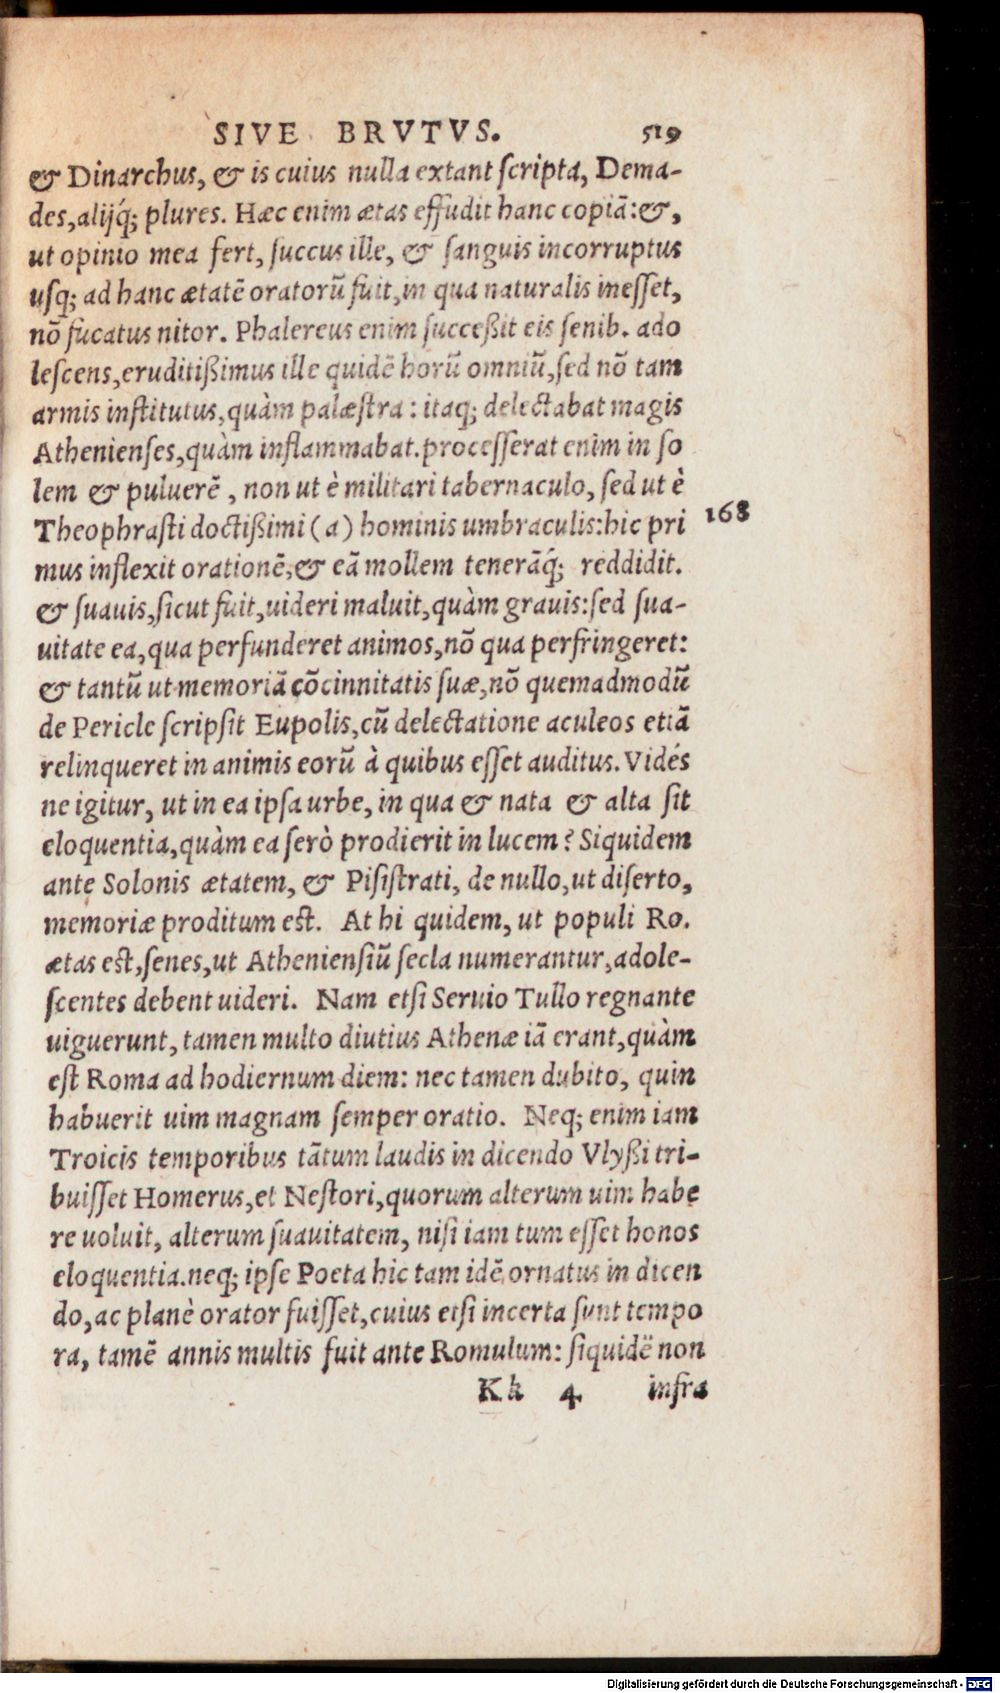 SIVE BRVTVS. 519
& Dinarchus, & is cuius nulla extant ſcripta, Dema-
des, alijq́; plures. Hæc enim ætas effudit hanc copiā: &,
ut opinio mea fert, ſuccus ille, & ſanguis incorruptus
uſq; ad hanc ætatē oratorū fuit, in qua naturalis ineſſet,
nō fucatus nitor. Phalereus enim ſucceßit eis ſenib. ado
leſcens, eruditißimus ille quidē horū omniū, ſed nō tam
armis inſtitutus, quàm palæſtra: itaq; delectabat magis
Athenienſes, quàm inflammabat. proceſſerat enim in ſo
lem & puluerē, non ut è militari tabernaculo, ſed ut è
Theophraſti doctißimi (a) hominis umbraculis: hic pri 168
mus inflexit orationē, & eā mollem tenerāq́; reddidit.
& ſuauis, ſicut fuit, uideri maluit, quàm grauis: ſed ſua-
uitate ea, qua perfunderet animos, nō qua perfringeret:
& tantū ut memoriā cōcinnitatis ſuæ, nō quemadmodū
de Pericle ſcripſit Eupolis, cū delectatione aculeos etiā
relinqueret in animis eorū à quibus eſſet auditus. Vidés
ne igitur, ut in ea ipſa urbe, in qua & nata & alta ſit
eloquentia, quàm ea ſerò prodierit in lucem? Siquidem
ante Solonis ætatem, & Piſiſtrati, de nullo, ut diſerto,
memoriæ proditum eſt. At hi quidem, ut populi Ro.
ætas eſt, ſenes, ut Athenienſiū ſecla numerantur, adole-
ſcentes debent uideri. Nam etſi Seruio Tullo regnante
uiguerunt, tamen multo diutius Athenæ iā erant, quàm
eſt Roma ad hodiernum diem: nec tamen dubito, quin
habuerit uim magnam ſemper oratio. Neq; enim iam
Troicis temporibus tātum laudis in dicendo Vlyßi tri-
buiſſet Homerus, et Neſtori, quorum alterum uim habe
re uoluit, alterum ſuauitatem, niſi iam tum eſſet honos
eloquentia. neq; ipſe Poeta hic tam idē ornatus in dicen
do, ac planè orator fuiſſet, cuius etſi incerta ſunt tempo
ra, tamē annis multis fuit ante Romulum: ſiquidē non
Kk 4 infra
Digitalisierung gefördert durch die Deutsche Forschungsgemeinschaft - DFG